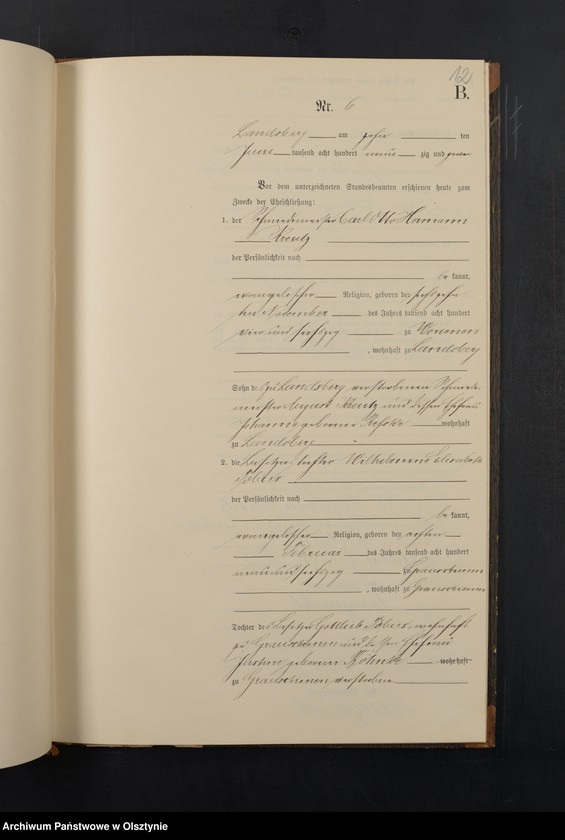 12
B.
Nr. 6
Landsberg am zehn ten
Juni tausend acht hundert neun zig und zwei
Vor dem unterzeichneten Standesbeamten erschienen heute zum
Zwecke der Eheschließung:
1. der Schmiedemeister Carl Otto Hermann
Kreutz
der Persönlichkeit nach
be kannt,
evangelischer Religion, geboren den sechszehn
ten November des Jahres tausend acht hundert
vier und sechszig zu Worienen
, wohnhaft zu Landsberg
Sohn des zu Landsberg verstorbenen Schmiede-
meister August Kreutz und dessen Ehefrau
Johanna geborene wohnhaft
zu Landsberg
2. die Besitzertochter Wilhelmine Elisabeth
der Persönlichkeit nach
be kannt,
evangelischer Religion, geboren den achten
Februar des Jahres tausend acht hundert
neun und sechszig zu
, wohnhaft zu
Tochter des Besitzer Gottlieb wohnhaft
zu und dessen Ehefrau
Justine geborene wohnhaft
zu verstorben
Archiwum Państwowe w Olsztynie